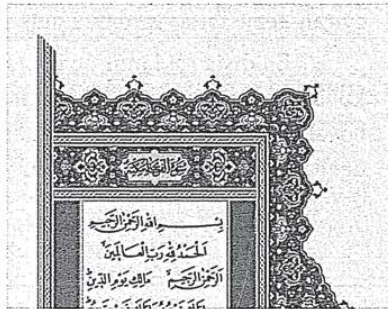 سورة الفاتحة مكية
بسم الله الرحمن الرحيم
الحمد لله رب العالمين
الرحمن الرحيم مالك يوم الدين